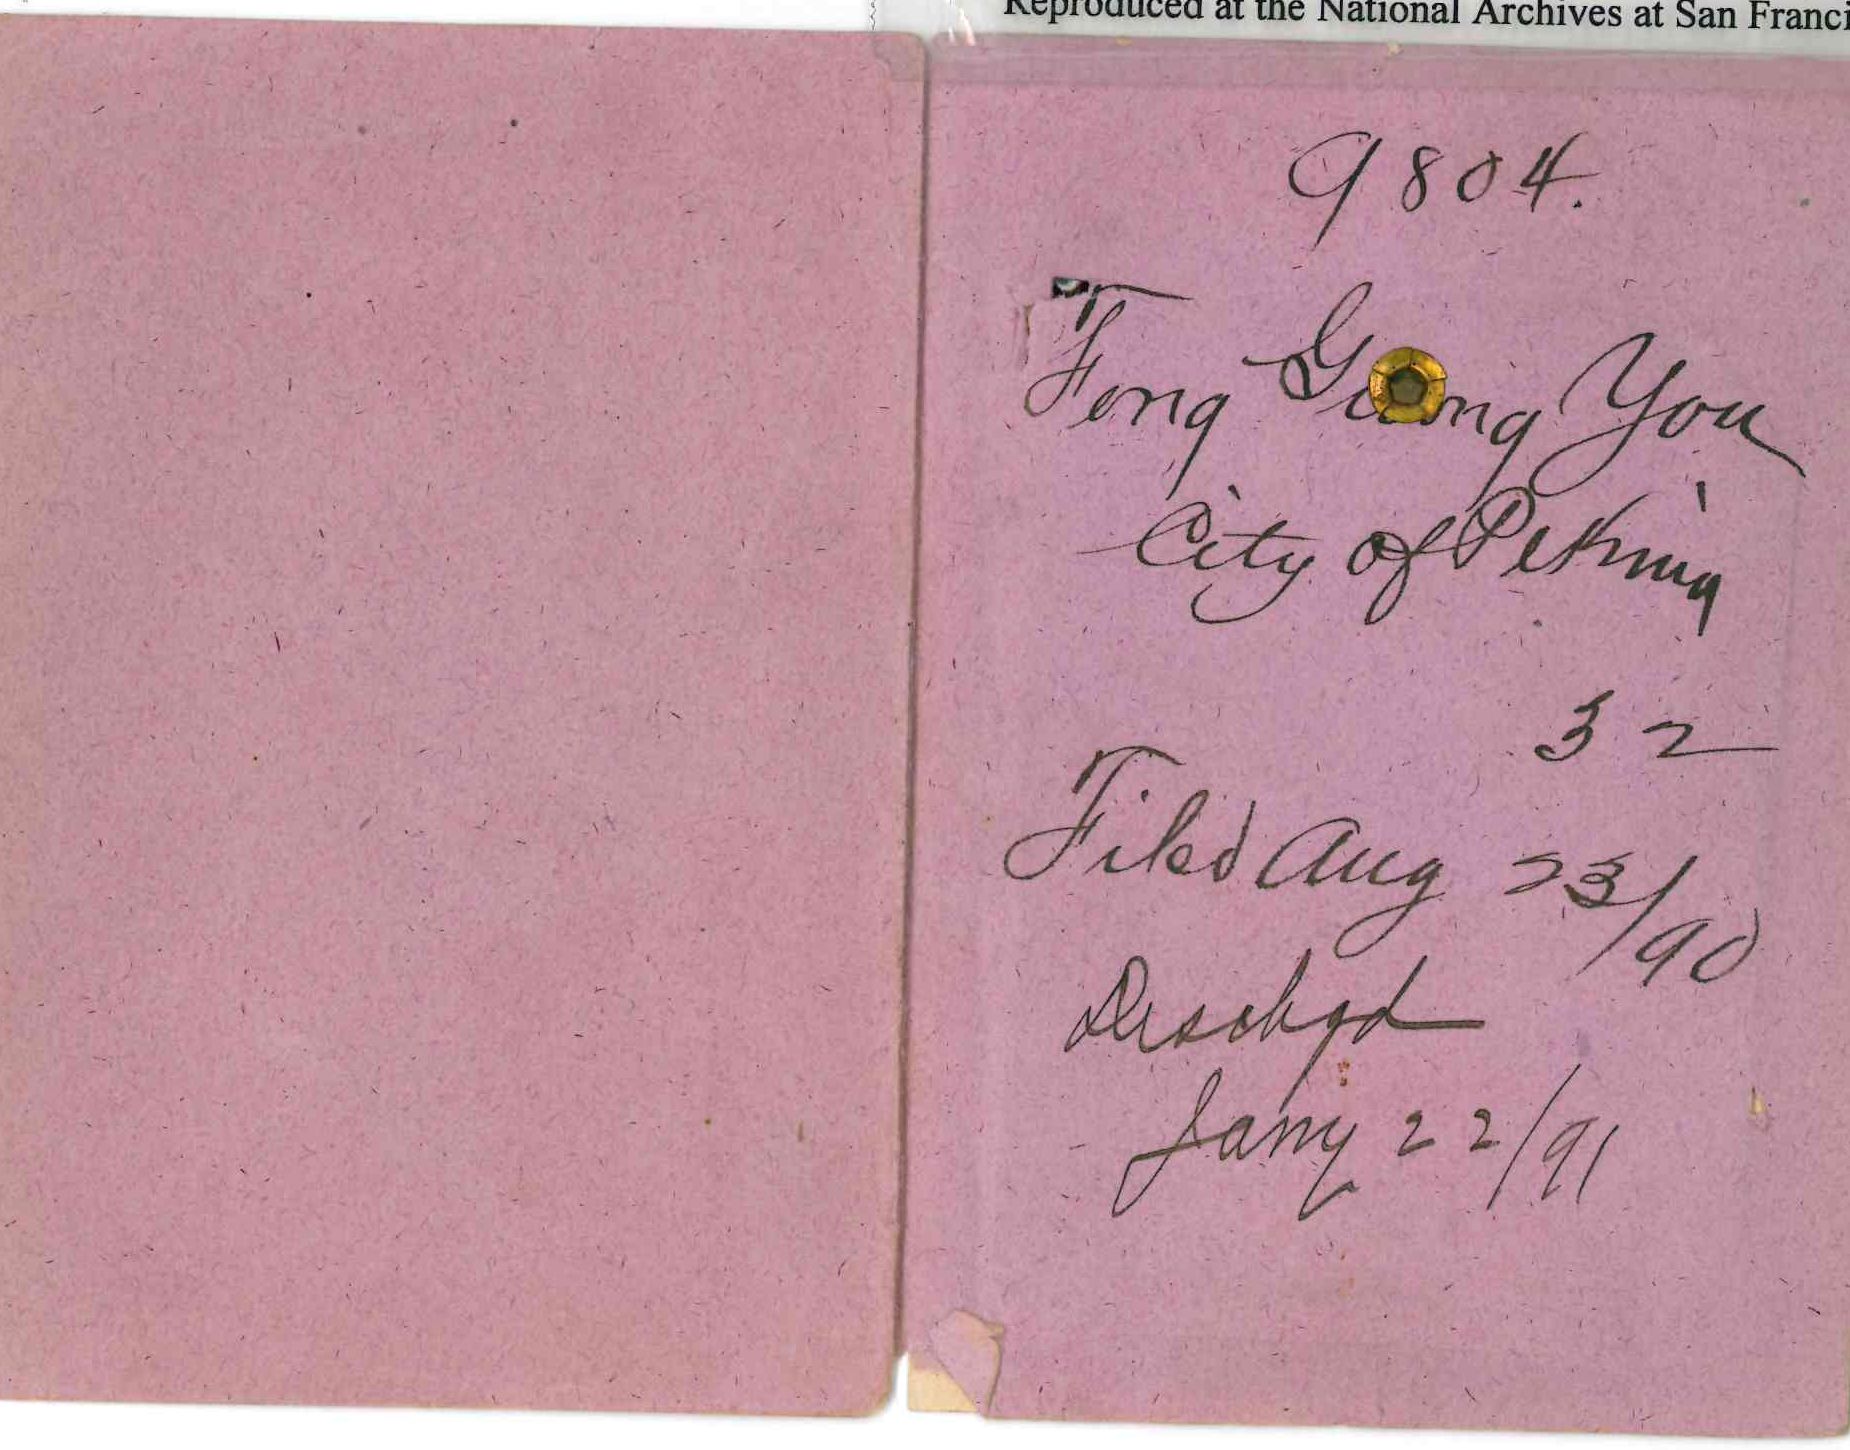 Reproduced at the National Archives at San Franci
9804.
Fong You
City of Peking
32
Filed Aug 23/90
Dischgd
Jany 22/91